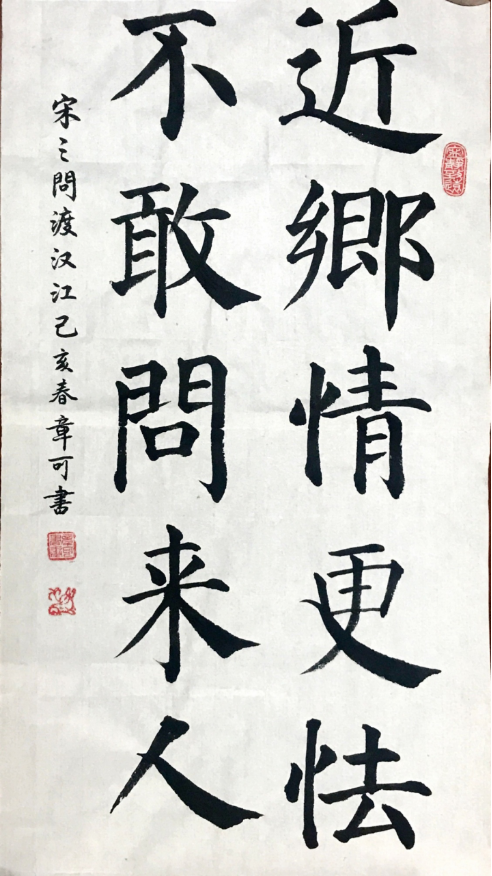 近鄉情更怯
不敢問来人
宋之問渡汉江己亥春章可書